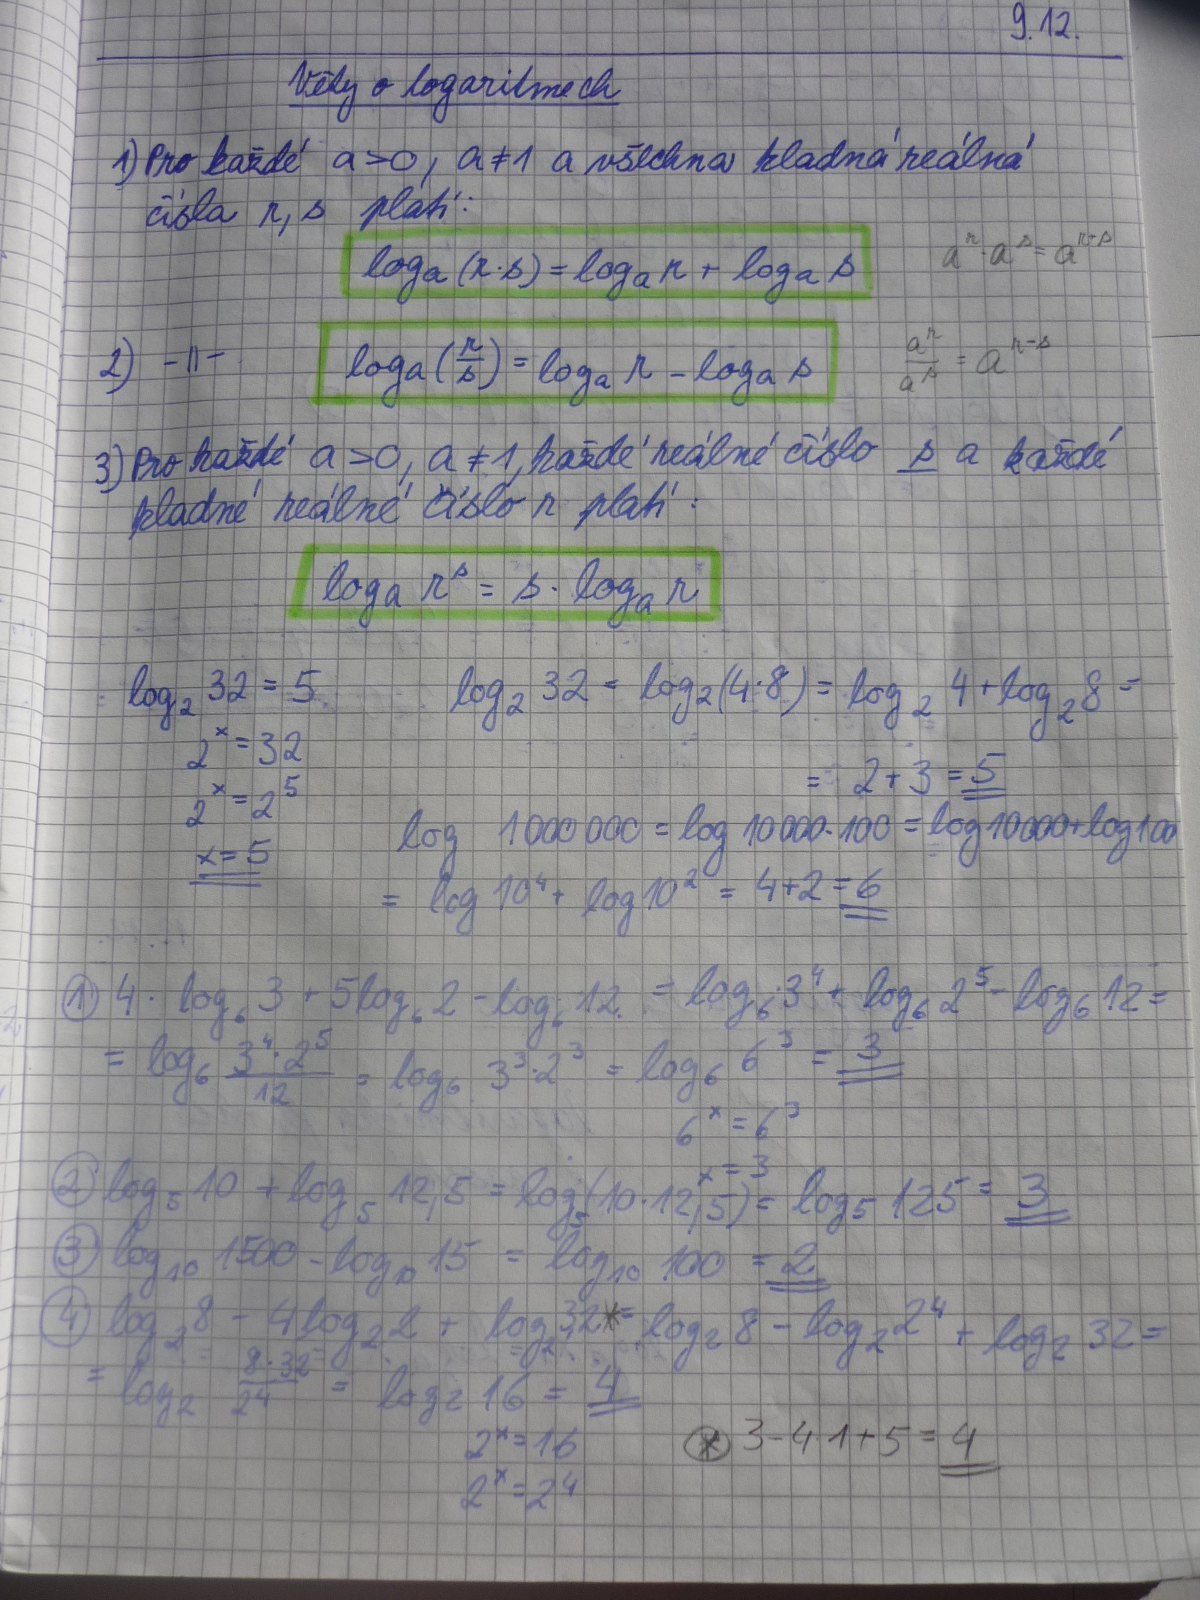 9.12.
Věty o logaritmech
1) Pro každé a>0, a≠1 a všechna kladná reálná
čísla r, s platí:
logₐ(r·s) = logₐ r + logₐ s
aʳ·aˢ = aʳ⁺ˢ
2) -||- logₐ(r/s) = logₐ r - logₐ s
aʳ/aˢ = aʳ⁻ˢ
3) Pro každé a>0, a≠1, každé reálné číslo s a každé
kladné reálné číslo r platí:
logₐ rˢ = s · logₐ r
log₂ 32 = 5 log₂ 32 = log₂(4·8) = log₂ 4 + log₂ 8 =
2ˣ = 32
= 2 + 3 = 5
2ˣ = 2⁵
log 1000 000 = log 10 000·100 = log 10000 + log 100
x = 5
= log 10⁴ + log 10² = 4+2 = 6
① 4· log₆ 3 + 5log₆ 2 - log₆ 12 = log₆ 3⁴ + log₆ 2⁵ - log₆ 12 =
= log₆ 3⁴·2⁵/12 = log₆ 3³·2³ = log₆ 6³ = 3
6ˣ = 6³
x = 3
② log₅ 10 + log₅ 12,5 = log₅(10·12,5) = log₅ 125 = 3
③ log₁₀ 1500 - log₁₀ 15 = log₁₀ 100 = 2
④ log₂ 8 - 4log₂ 2 + log₂ 32 * = log₂ 8 - log₂ 2⁴ + log₂ 32 =
= log₂ 8·32/2⁴ = log₂ 16 = 4
2ˣ = 16
* 3-4·1+5 = 4
2ˣ = 2⁴